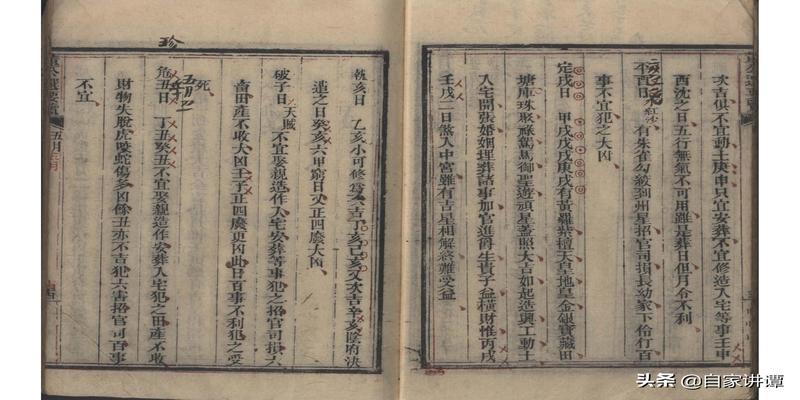 次吉俱不宜動土庚申只宜安葬不宜修造入宅等事壬申
酉沈之日五行無氣不可用雖是葬日但月令不利
有朱雀勾絞到州星招官司損長幼家下伶仃百
事不宜犯之大凶
定戌日 甲戌戊戌庚戌有黃羅紫檀天皇地皇金銀寶藏田
塘庫珠聚祿驛馬御聖遊頑星蓋照大吉如起造興工動土
入宅開張婚姻埋葬諸事加官進爵生貴子益橫財惟丙戌
壬戌二日煞入中宮雖有吉星相解終難受益
執亥日 乙亥小可修爲次吉丁亥己亥又次吉辛亥陰府決
遣之日癸亥六甲窮日又正四廢大凶
破子日 天賊 不宜娶親造作入宅安葬等事犯之招官司損六
畜田産不收大凶壬子正四廢更凶此日百事不利犯之受
死
危丑日 丁丑癸丑不宜娶親造作安葬入宅犯之田産不收
財物失脫虎咬蛇傷多凶餘丑亦不吉犯六害招官司百事
不宜
五月
珍
头条 @自家讲谭